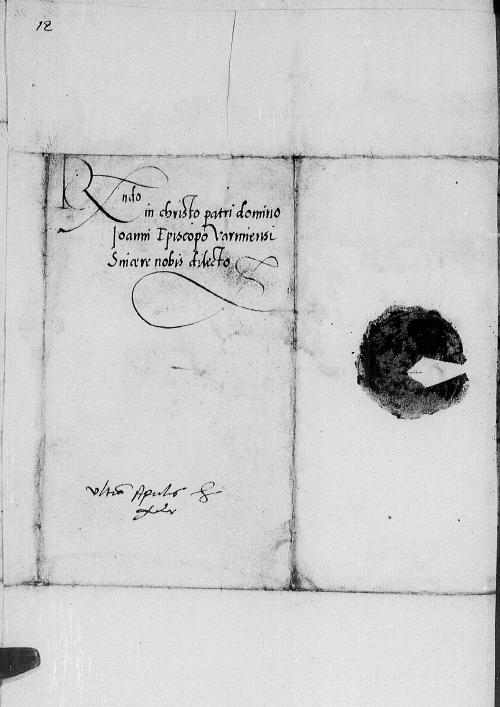 12
Rndo
in christo patri domino
Joanni Episcopo Varmiensi
Sincere nobis dilecto
Aprilis